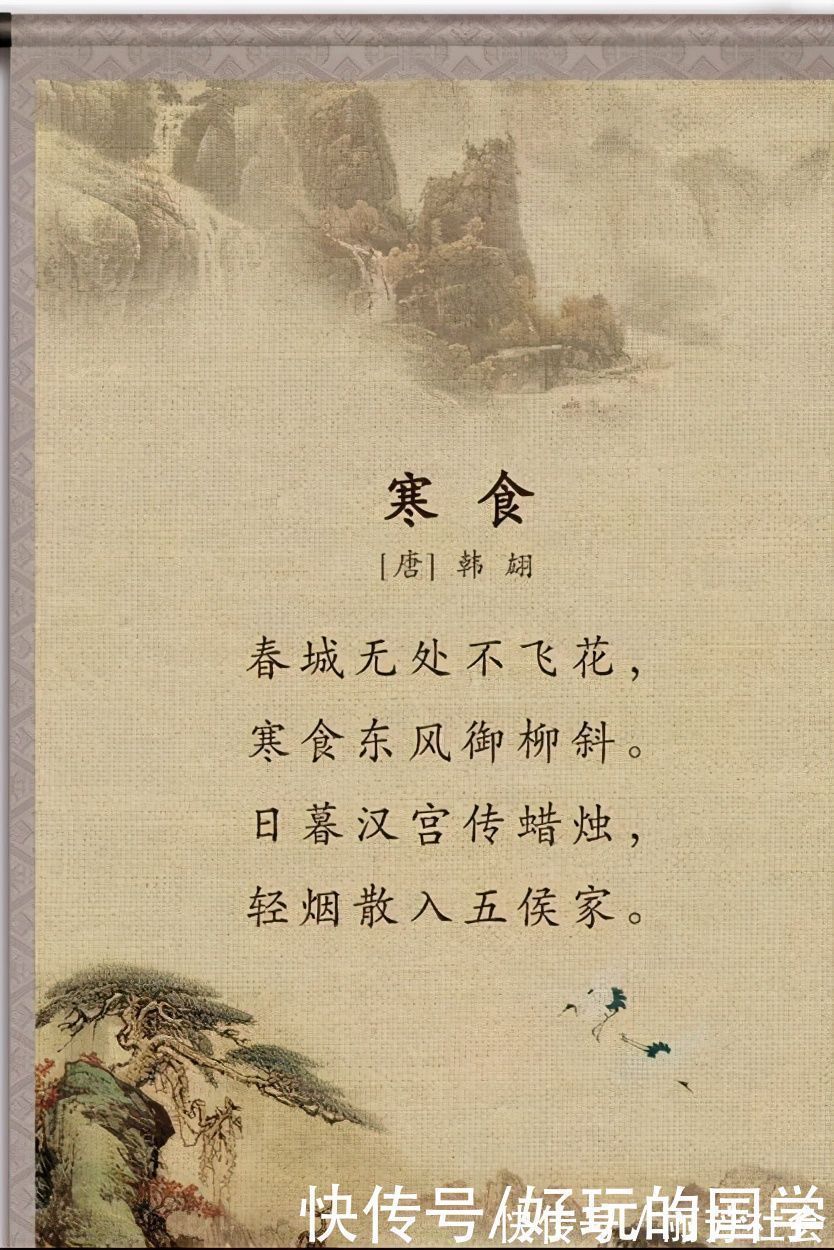 寒食
[唐] 韩翃
春城无处不飞花，
寒食东风御柳斜。
日暮汉宫传蜡烛，
轻烟散入五侯家。
快传号/好玩的国学